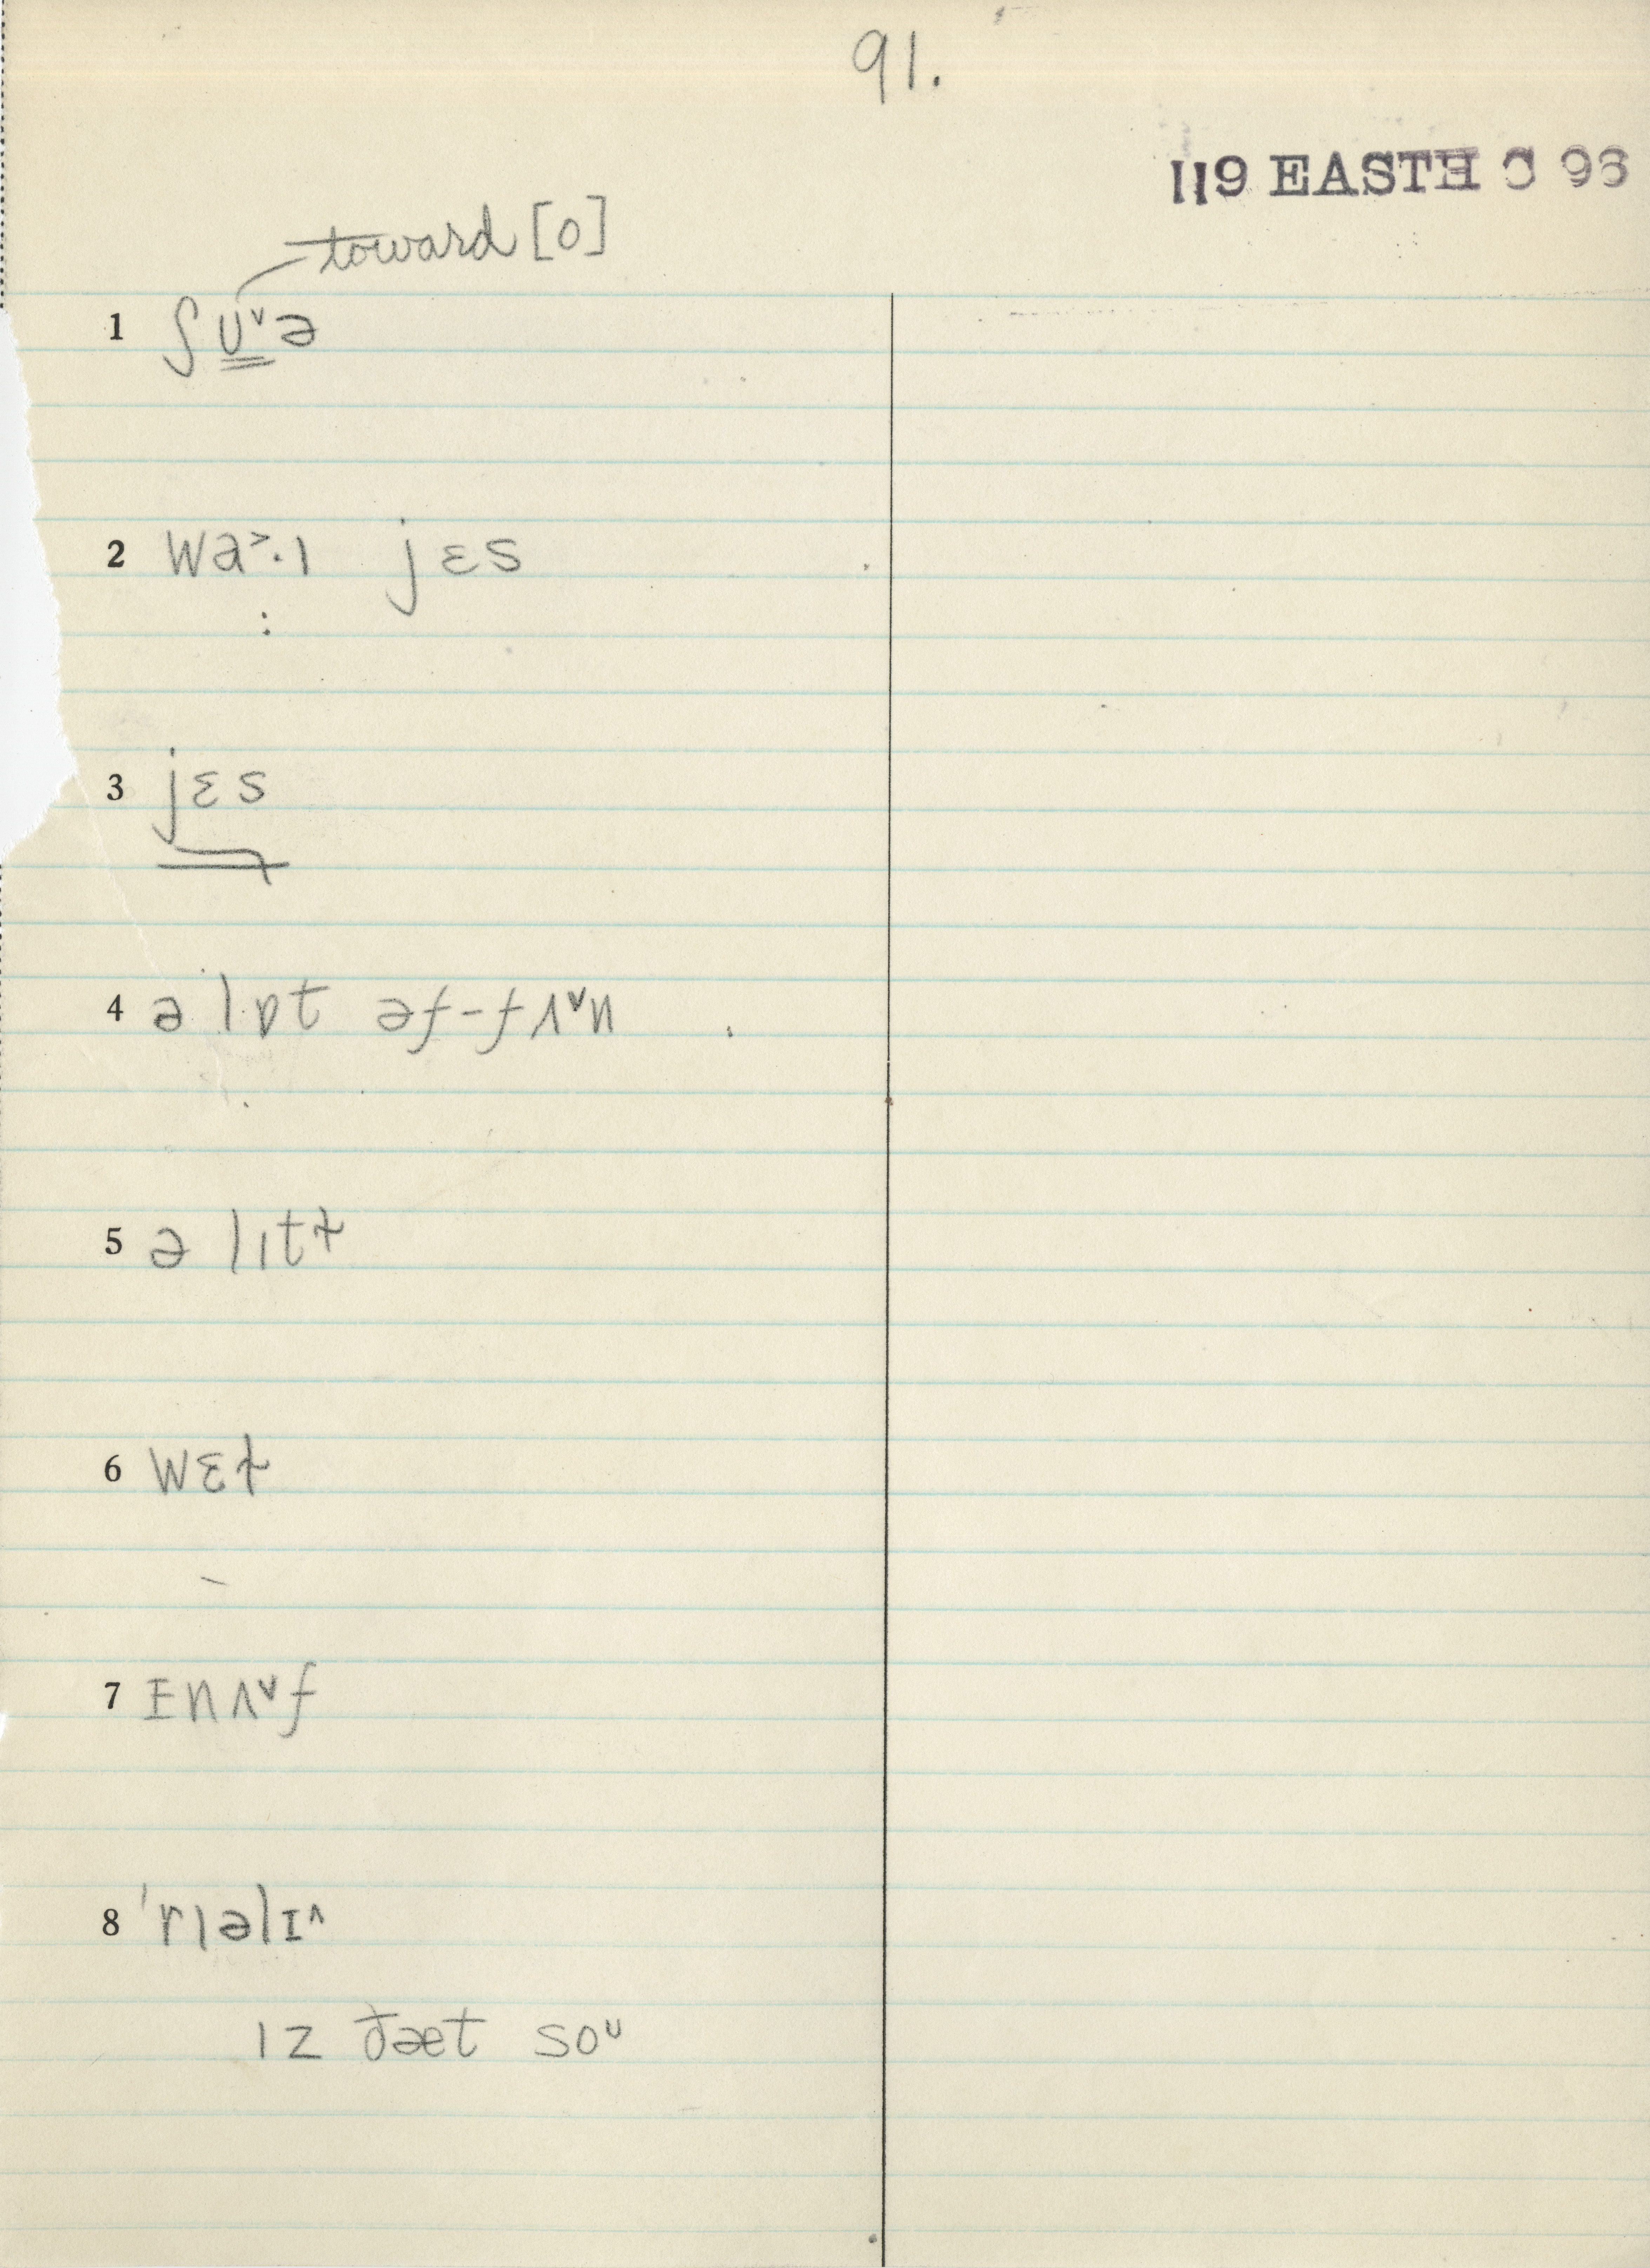 91.
119 EASTH C 96
toward [o]
1 ʃ ʊ̳ˇə
2 wa˃·ɪ jɛs
3 jɛs
4 ə lɒt əf-fʌˇn
5 ə lɪtɫ
6 wɛɫ
7 ɪnʌˇf
8 ˈrɪəlɪ^
ɪz ðæt soᶷ